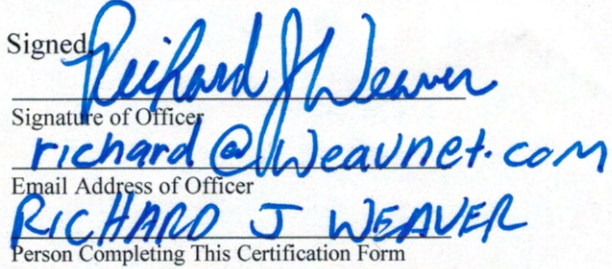 Signed,
Richard J Weaver
Signature of Officer
richard@weavnet.com
Email Address of Officer
RICHARD J WEAVER
Person Completing This Certification Form